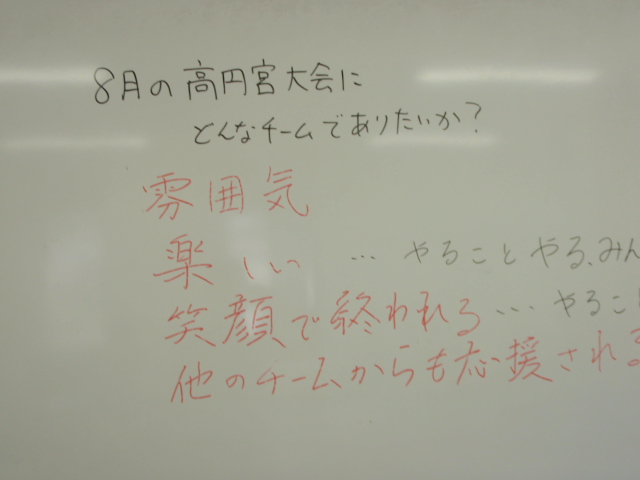 8月の高円宮大会に
どんなチームでありたいか?
雰囲気
楽しい … やることやる、みん
笑顔で終われる … やるこ
他のチームからも応援される